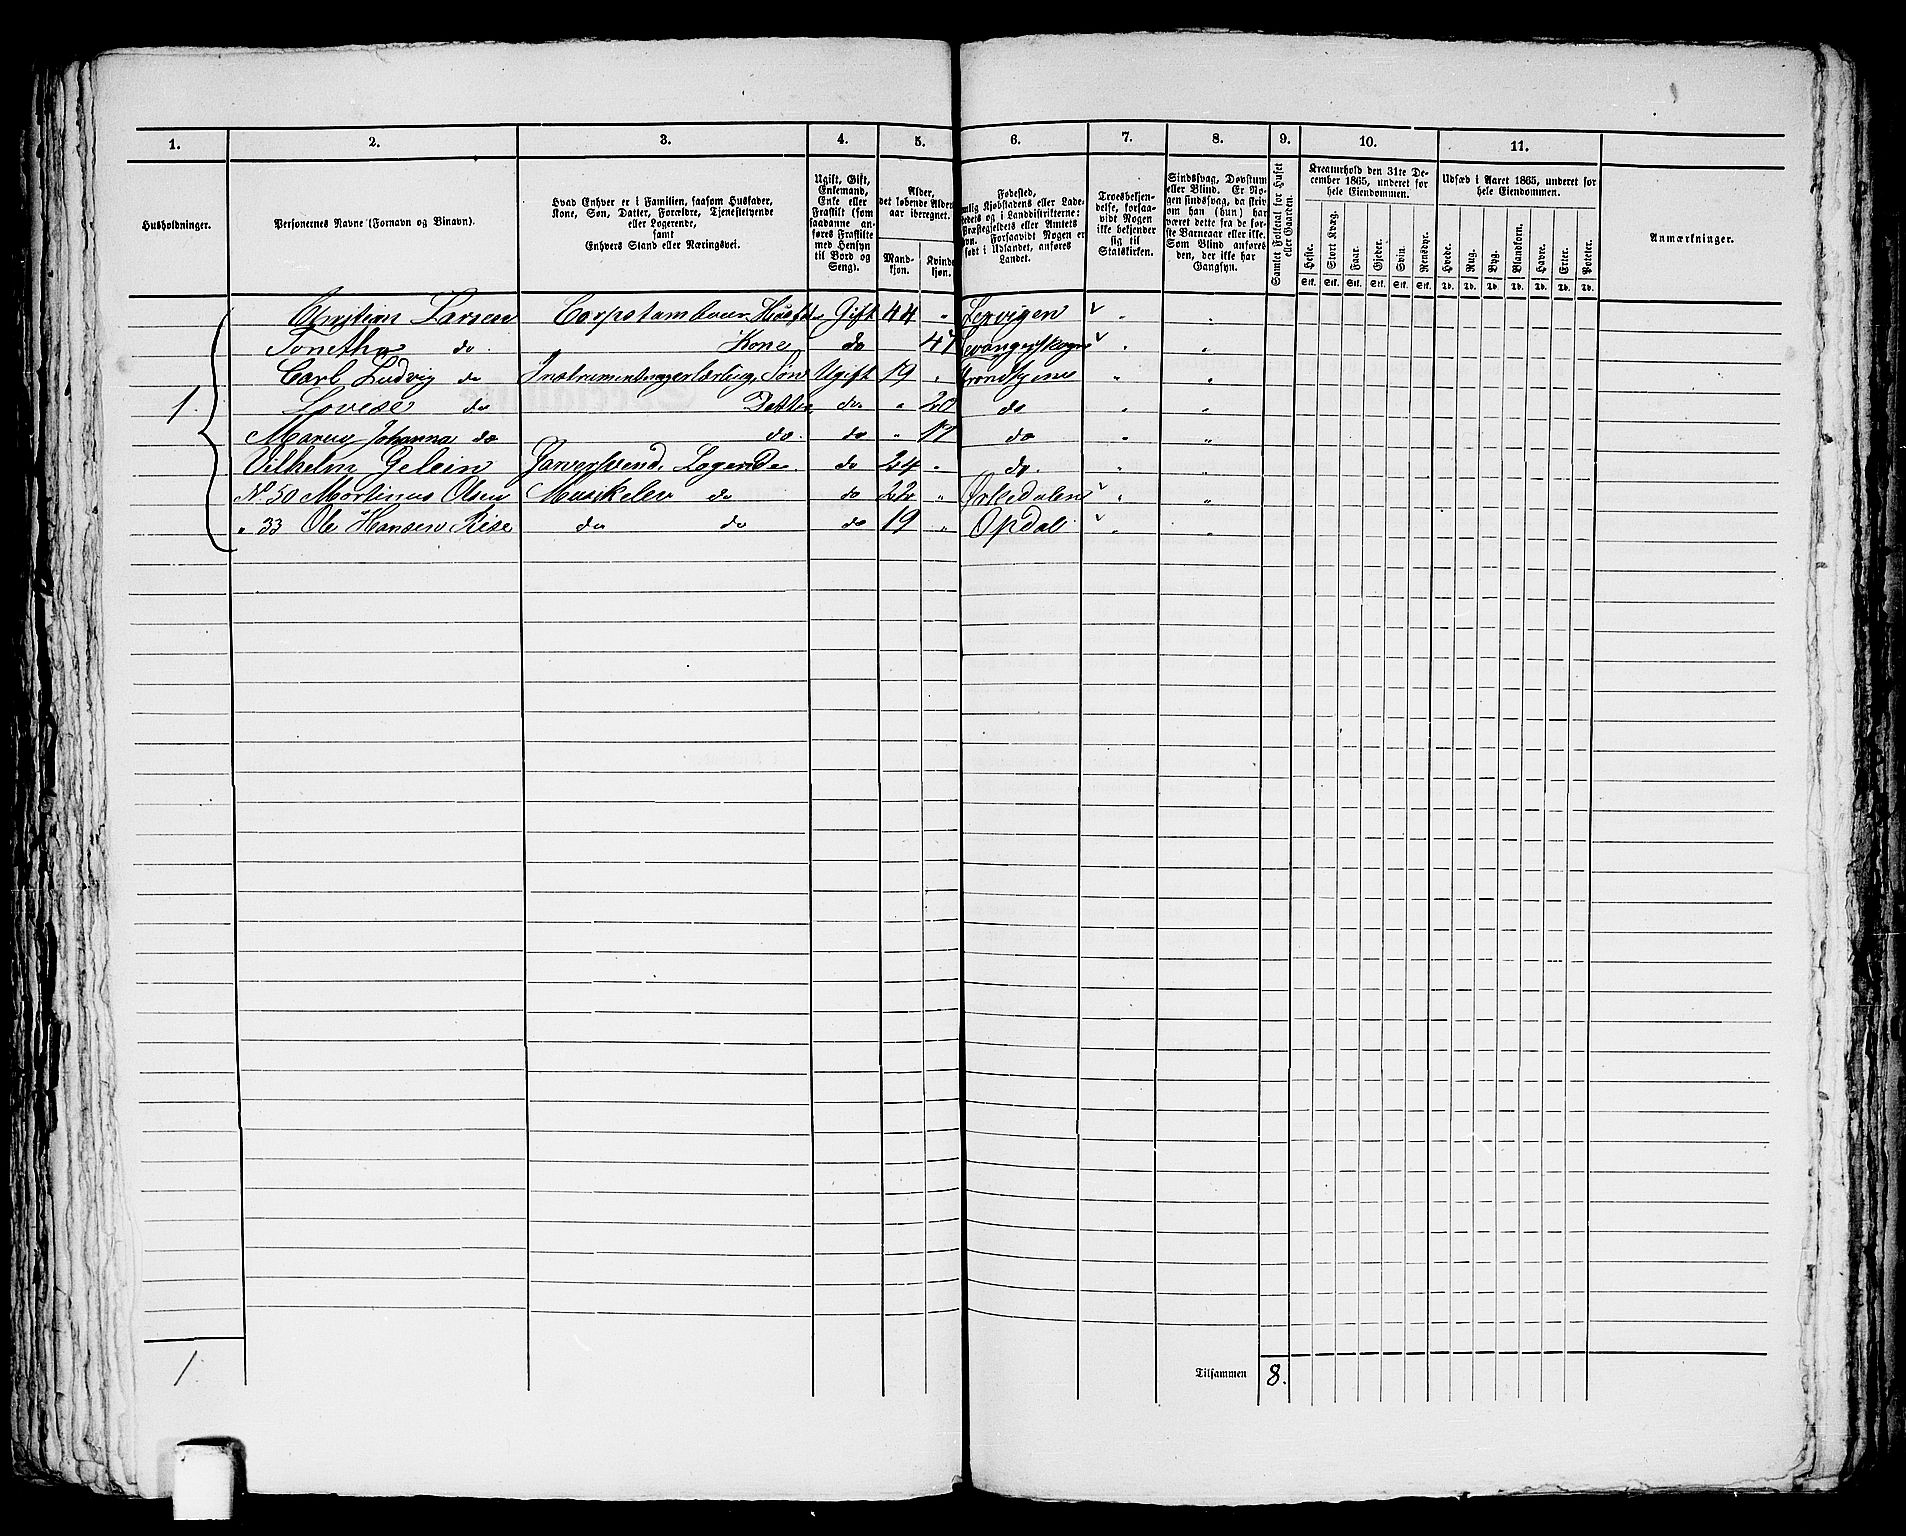 1. 2. 3. 4. 5. 6. 7. 8. 9. 10. 11.
Husholdninger.
Personernes Navne (Fornavn og Binavn).
Hvad Enhver er i Familien, saasom Husfader,
Kone, Søn, Datter, Forældre, Tjenestetyende
eller Logerende,
samt
Enhvers Stand eller Næringsvei.
Ugift, Gift,
Enkemand,
Enke eller
Fraskilt (som
saadanne an-
føres Fraskilte
med Hensyn
til Bord og
Seng).
Alder,
det løbende Alders-
aar iberegnet.
Mand-
kjøn.
Kvinde-
kjøn.
Fødested,
nemlig Kjøbstadens eller Lade-
stedets og i Landdistrikterne:
Præstegjeldets eller Amtets
Navn. Forsaavidt Nogen er
født i Udlandet, anføres
Landet.
Troesbekjen-
delse, forsaa-
vidt Nogen
ikke bekjender
sig til
Statskirken.
Sindssvag, Døvstum
eller Blind. Er No-
gen sindssvag, da skriv
om han (hun) har
været dette fra de før-
ste Barneaar eller ikke.
Som Blind anføres
den, der ikke har
Gangsyn.
Samlet Folketal for Huset
eller Gaarden.
Kreaturhold den 31te De-
cember 1865, underet for
hele Eiendommen.
Heste. Stort Kvæg. Faar. Gjeder. Svin. Rensdyr.
Stk. Stk. Stk. Stk. Stk. Stk.
Udsæd i Aaret 1865, underet for
hele Eiendommen.
Hvede. Rug. Byg. Blandkorn. Havre. Erter. Poteter.
Td. Td. Td. Td. Td. Td. Td.
Anmærkninger.
Christian Larsen Corpstambour Husfdr Gift 44 " Lexvigen
Tonetha do Kone do 47 Levangerskogn
Carl Ludvig do Søn Ugift 19 " Trondhjem
1. Lovise do Datter do " 20 do
Johanna do do. do " 17 do
Vilhelm Gelein Logerende do 24 " do.
No 50 Martinus Olsen Musikelev do do 22 " Orkedalen
" 33 Ole Hansen Rise do do do 19 " Opdal
1.
Tilsammen 8.